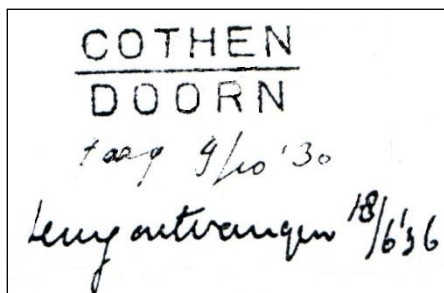 COTHEN
DOORN
9/10 '30
terug ontvangen 18/6 '36